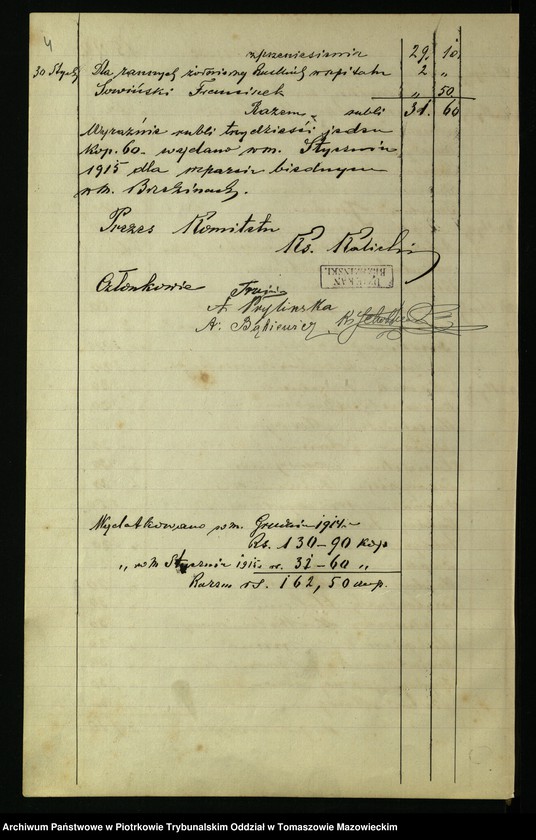 4
z przeniesienia 29. 10
30 Stycz Dla rannych żołnierzy Ruskich w szpitalu 2 „
Sowiński Franciszek „ 50
Razem rubli 31. 60
Wyraźnie rubli trzydzieści jeden
kop. 60 wydano w m. Styczniu
1915 dla wsparcia biednym
w m. Brzezinach.
Prezes Komitetu
Ks. Kalicki
DZIEKAN
BRZEZIŃSKI.
Członkowie
A Prylinska
A. Bąkiewicz
Wydatkowano w m. Grudniu 1914
Rs. 130-90 kop
„ w m Styczniu 1915 r. 31-60 „
Razem rs. 162,50 kop.
Archiwum Państwowe w Piotrkowie Trybunalskim Oddział w Tomaszowie Mazowieckim